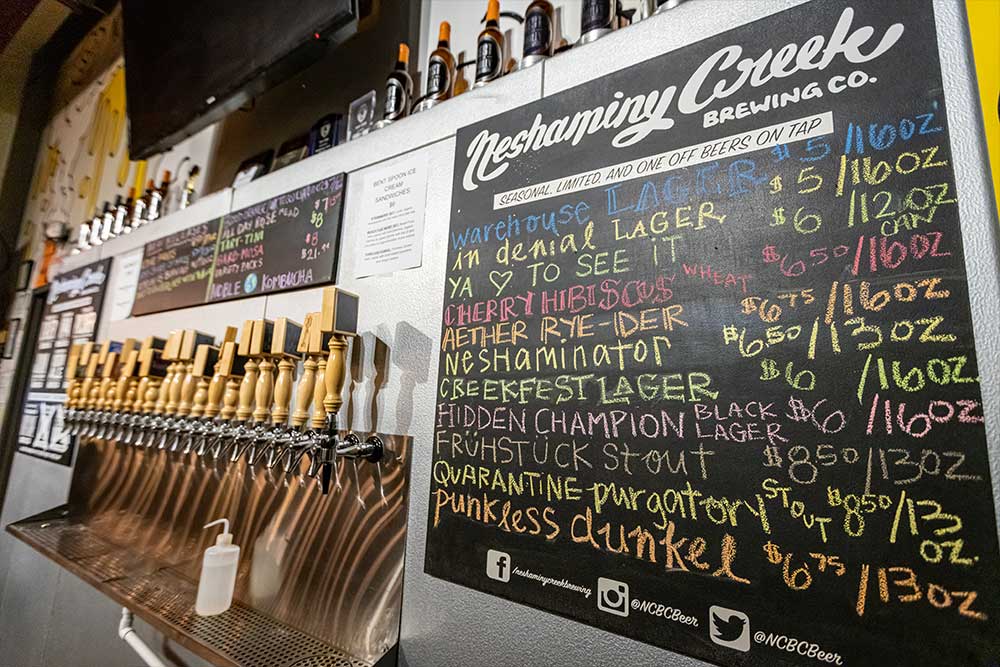 Neshaminy Creek
BREWING CO.
SEASONAL, LIMITED, AND ONE OFF BEERS ON TAP
warehouse LAGER $5/16OZ
in denial LAGER $5/16OZ
YA ♡ TO SEE IT $6/12OZ CAN
CHERRY HIBISCUS WHEAT $6.50/16OZ
AETHER RYE-IDER $6.75/16OZ
Neshaminator $6.50/13OZ
CREEKFEST LAGER $6/16OZ
HIDDEN CHAMPION BLACK LAGER $6/16OZ
FRÜHSTÜCK Stout $8.50/13OZ
QUARANTINE purgatory STOUT $8.50/13 OZ.
punkless dunkel $6.75/13OZ
/neshaminycreekbrewing
@NCBCBeer
@NCBCBeer
BENT SPOON ICE
CREAM
SANDWICHES
$6
ALL DAY ROSE MEAD $7
TART-TINI $8
HARD MOSA $8
VARIETY PACKS $21
NOBLE KOMBUCHA
Neshaminy Creek